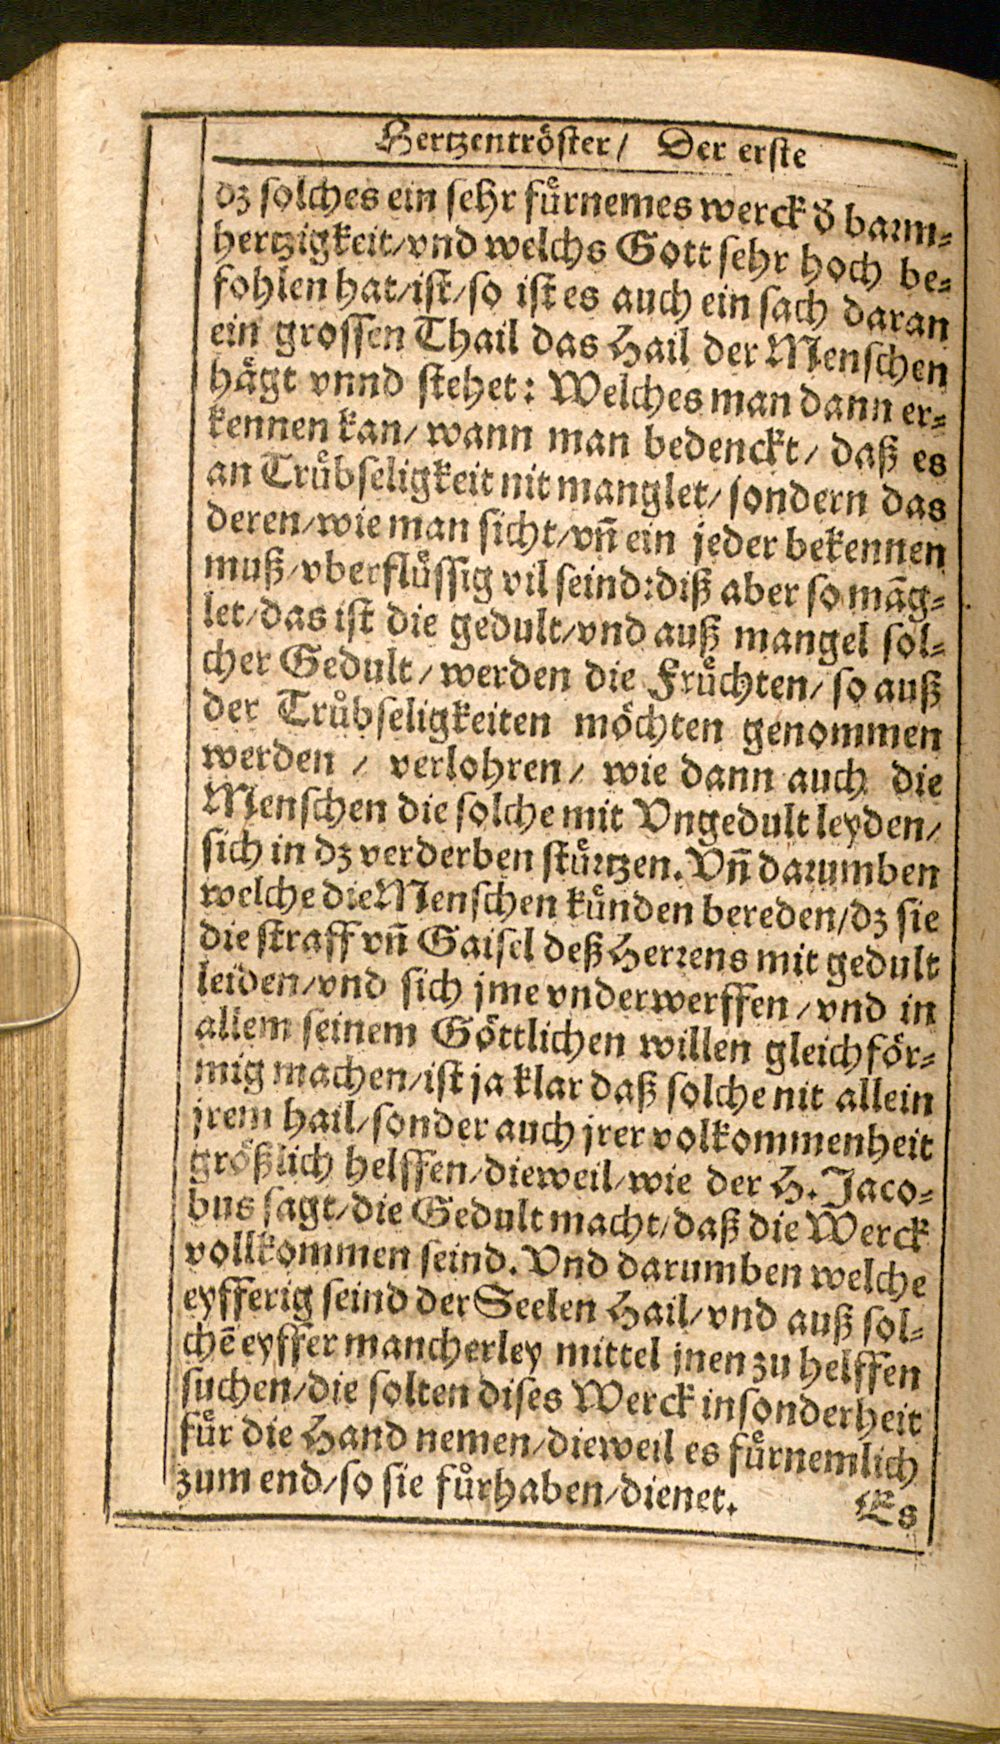 Hertzentröster/ Der erste
dz solches ein sehr fürnemes werck ď barm=
hertzigkeit/vnd welchs Gott sehr hoch be=
fohlen hat/ist/so ist es auch ein sach daran
ein grossen Thail das Hail der Menschen
hāgt vnnd stehet: Welches man dann er=
kennen kan/ wann man bedenckt/ daß es
an Trübseligkeit nit manglet/ sondern das
deren/wie man sicht/vñ ein jeder bekennen
muß/vberflüssig vil seind:diß aber so māg=
let/das ist die gedult/vnd auß mangel sol=
cher Gedult/ werden die Früchten/ so auß
der Trübseligkeiten möchten genommen
werden / verlohren/ wie dann auch die
Menschen die solche mit Vngedult leyden/
sich in dz verderben stürtzen. Vñ darumben
welche die Menschen künden bereden/dz sie
die straff vñ Gaisel deß Herrens mit gedult
leiden/vnd sich jme vnderwerffen/vnd in
allem seinem Göttlichen willen gleichför=
mig machen/ist ja klar daß solche nit allein
jrem hail/sonder auch jrer volkommenheit
größlich helffen/dieweil/wie der H. Jaco=
bus sagt/die Gedult macht/daß die Werck
vollkommen seind. Vnd darumben welche
eyfferig seind der Seelen Hail/vnd auß sol=
chē eyffer mancherley mittel jnen zu helffen
suchen/die solten dises Werck insonderheit
für die Hand nemen/dieweil es fürnemlich
zum end/so sie fürhaben/dienet.
Es